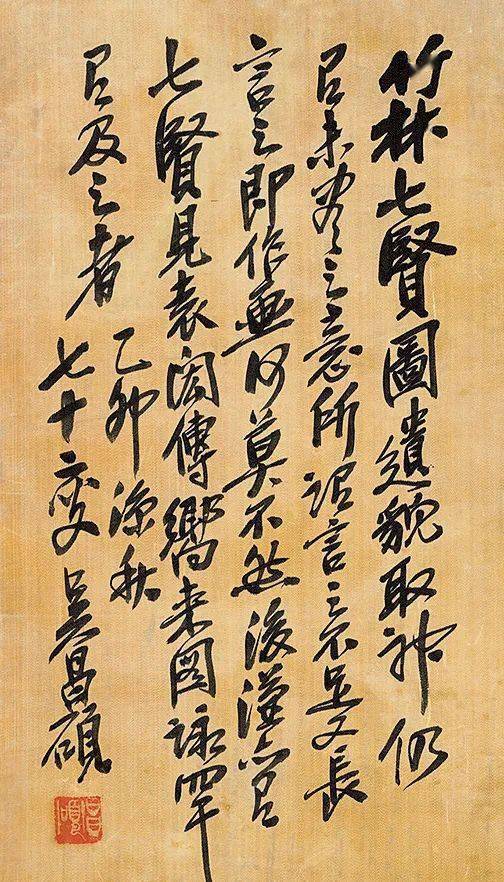 竹林七賢圖遺貌取神仍
有未盡之意所謂言之不足又長
言之即作畫何莫不然後漢亦有
七賢見袁閎傳嚮来图詠罕
有及之者
乙卯深秋
七十二叟吳昌碩